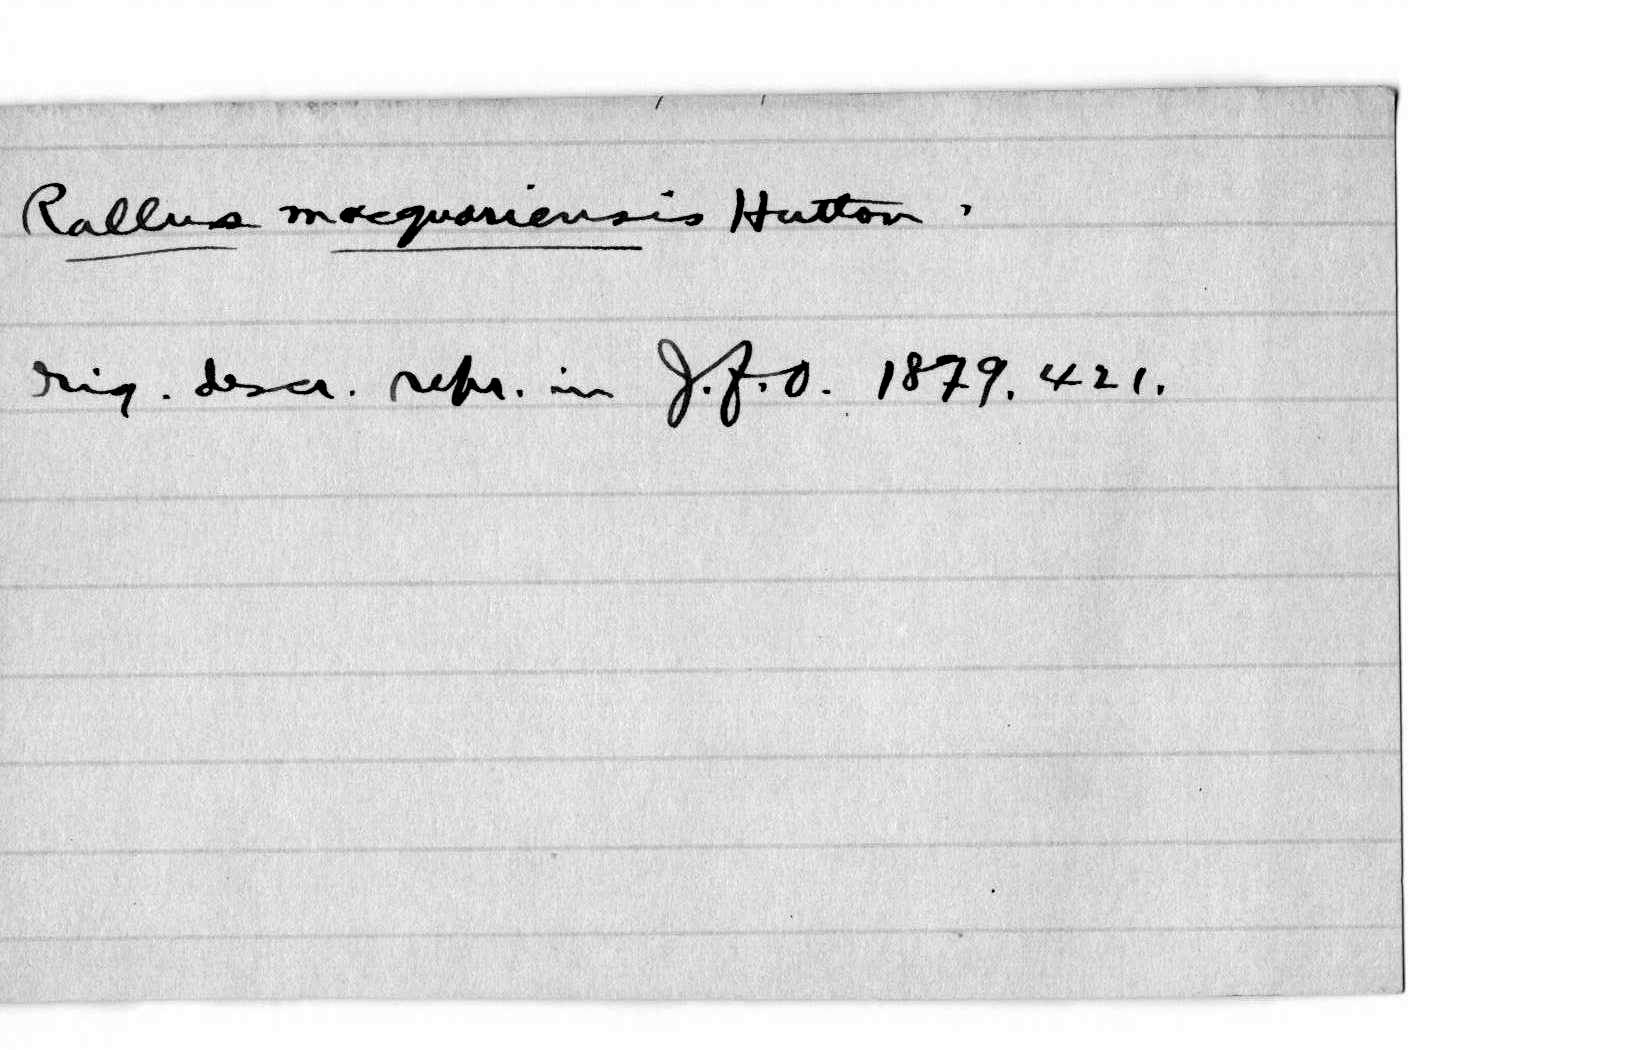 Rallus macquariensis Hutton.
rig. descr. repr. in J.f.O. 1879. 421.